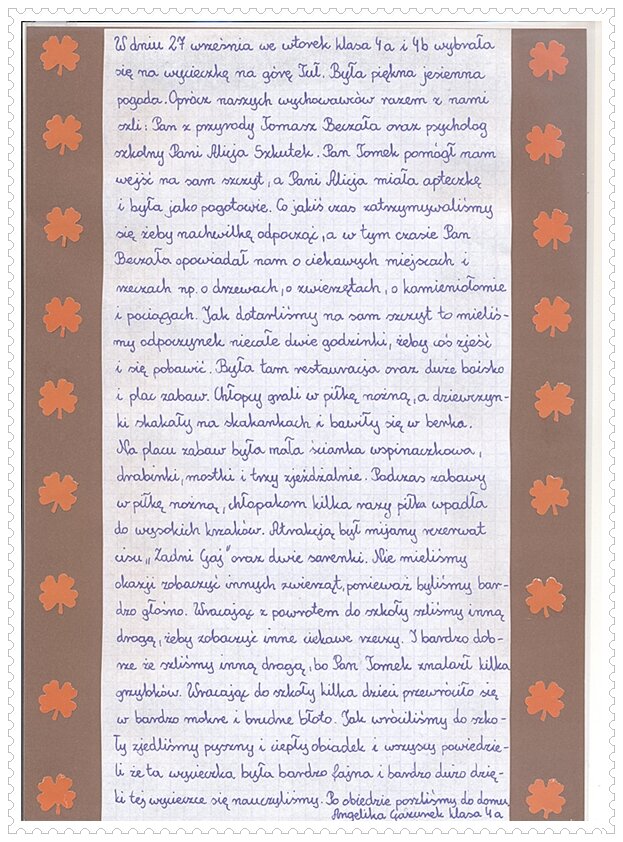 W dniu 27 września we wtorek klasa 4a i 4b wybrała
się na wycieczkę na górę Tuł. Była piękna jesienna
pogoda. Oprócz naszych wychowawców razem z nami
szli: Pan z przyrody Tomasz Beczała oraz psycholog
szkolny Pani Alicja Szkutek. Pan Tomek pomógł nam
wejść na sam szczyt, a Pani Alicja miała apteczkę
i była jako pogotowie. Co jakiś czas zatrzymywaliśmy
się żeby nachwilkę odpocząć, a w tym czasie Pan
Beczała opowiadał nam o ciekawych miejscach i
rzeczach np. o drzewach, o zwierzętach, o kamieniołomie
i pociągach. Jak dotarliśmy na sam szczyt to mieliś-
my odpoczynek niecałe dwie godzinki, żeby coś zjeść
i się pobawić. Była tam restauracja oraz duże boisko
i plac zabaw. Chłopcy grali w piłkę nożną, a dziewczyn-
ki skakały na skakankach i bawiły się w berka.
Na placu zabaw była mała ścianka wspinaczkowa,
drabinki, mostki i trzy zjeżdżalnie. Podczas zabawy
w piłkę nożną, chłopakom kilka razy piłka wpadła
do wysokich krzaków. Atrakcją był mijany rezerwat
cisu „Zadni Gaj" oraz dwie sarenki. Nie mieliśmy
okazji zobaczyć innych zwierząt, ponieważ byliśmy bar-
dzo głośno. Wracając z powrotem do szkoły szliśmy inną
drogą, żeby zobaczyć inne ciekawe rzeczy. I bardzo dob-
rze że szliśmy inną drogą, bo Pan Tomek znalazł kilka
grzybków. Wracając do szkoły kilka dzieci przewróciło się
w bardzo mokre i brudne błoto. Jak wróciliśmy do szko-
ły zjedliśmy pyszny i ciepły obiadek i wszyscy powiedzie-
li że ta wycieczka była bardzo fajna i bardzo dużo dzię-
ki tej wycieczce się nauczyliśmy. Po obiedzie poszliśmy do domu.
Angelika klasa 4a